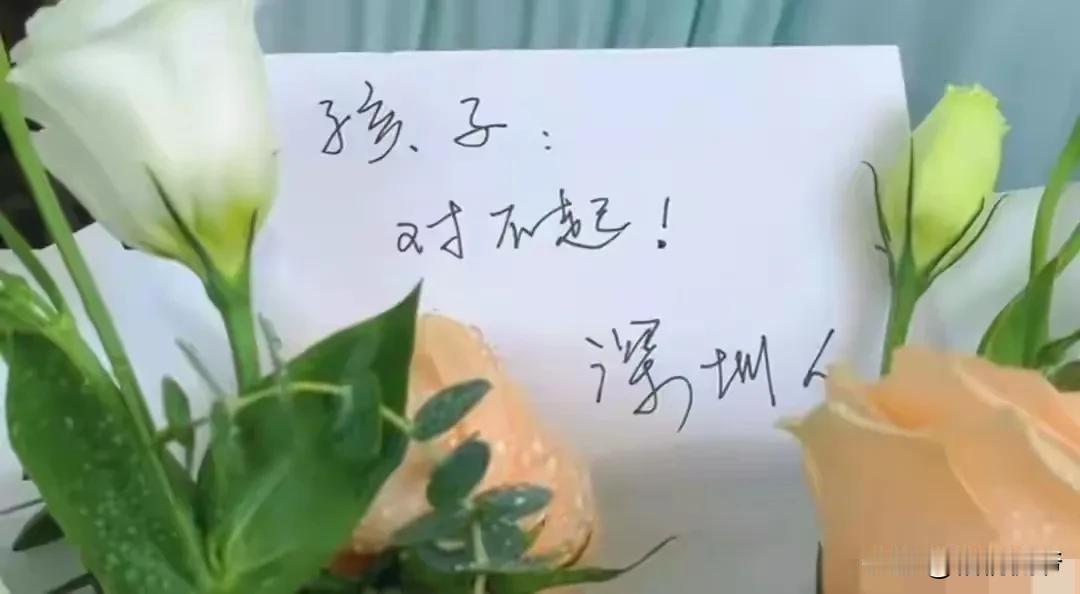 孩子：
对不起！
深圳人